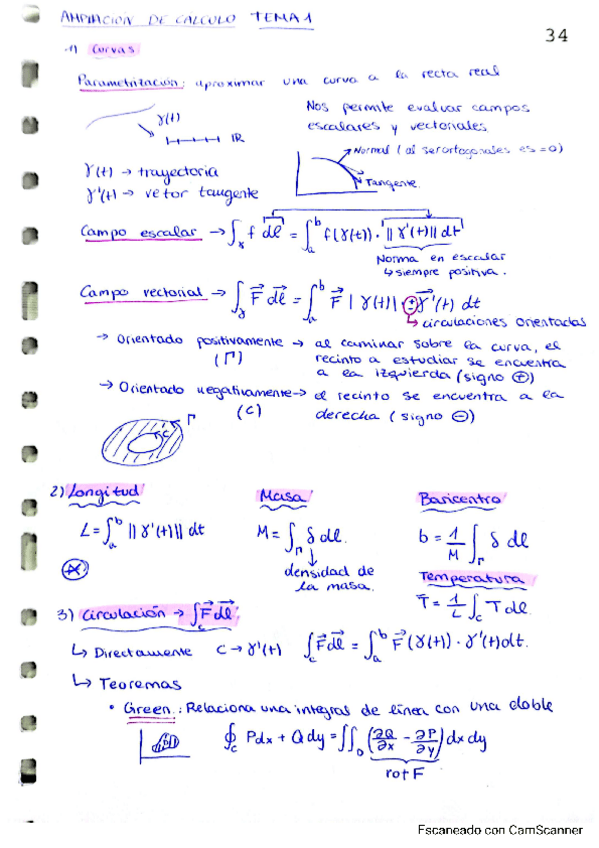 AMPLIACIÓN DE CÁLCULO TEMA 1
34
1) Curvas
Parametrización: aproximar una curva a la recta real
γ(t)
IR
Nos permite evaluar campos
escalares y vectoriales
Normal (al ser ortogonales es = 0)
Tangente.
γ(t) → trayectoria
γ'(t) → vetor taugente
Campo escalar → ∫γ f dl = ∫ₐᵇ f(γ(t)) · ||γ'(t)|| dt
Norma en escalar
↳ siempre positiva.
Campo vectorial → ∫γ F⃗ dl⃗ = ∫ₐᵇ F⃗ | γ(t)| ± γ⃗'(t) dt
↳ circulaciones orientadas
→ Orientado positivamente → al caminar sobre la curva, el
(Γ) recinto a estudiar se encuentra
a la izquierda (signo ⊕)
→ Orientado negativamente → el recinto se encuentra a la
(C) derecha (signo ⊖)
Γ
C
2) Longitud Masa Baricentro
L = ∫ₐᵇ ||γ'(t)|| dt M = ∫Γ δ dl. b = 1/M ∫Γ δ dl
densidad de
la masa.
Temperatura
T̄ = 1/L ∫c T dl
3) Circulación → ∫c F⃗ dl⃗
↳ Directamente C → γ'(t) ∫c F⃗ dl⃗ = ∫ₐᵇ F⃗(γ(t)) · γ'(t) dt.
↳ Teoremas
• Green: Relaciona una integral de línea con una doble
D
∮c Pdx + Qdy = ∬D (∂Q/∂x - ∂P/∂y) dx dy
rot F
Escaneado con CamScanner